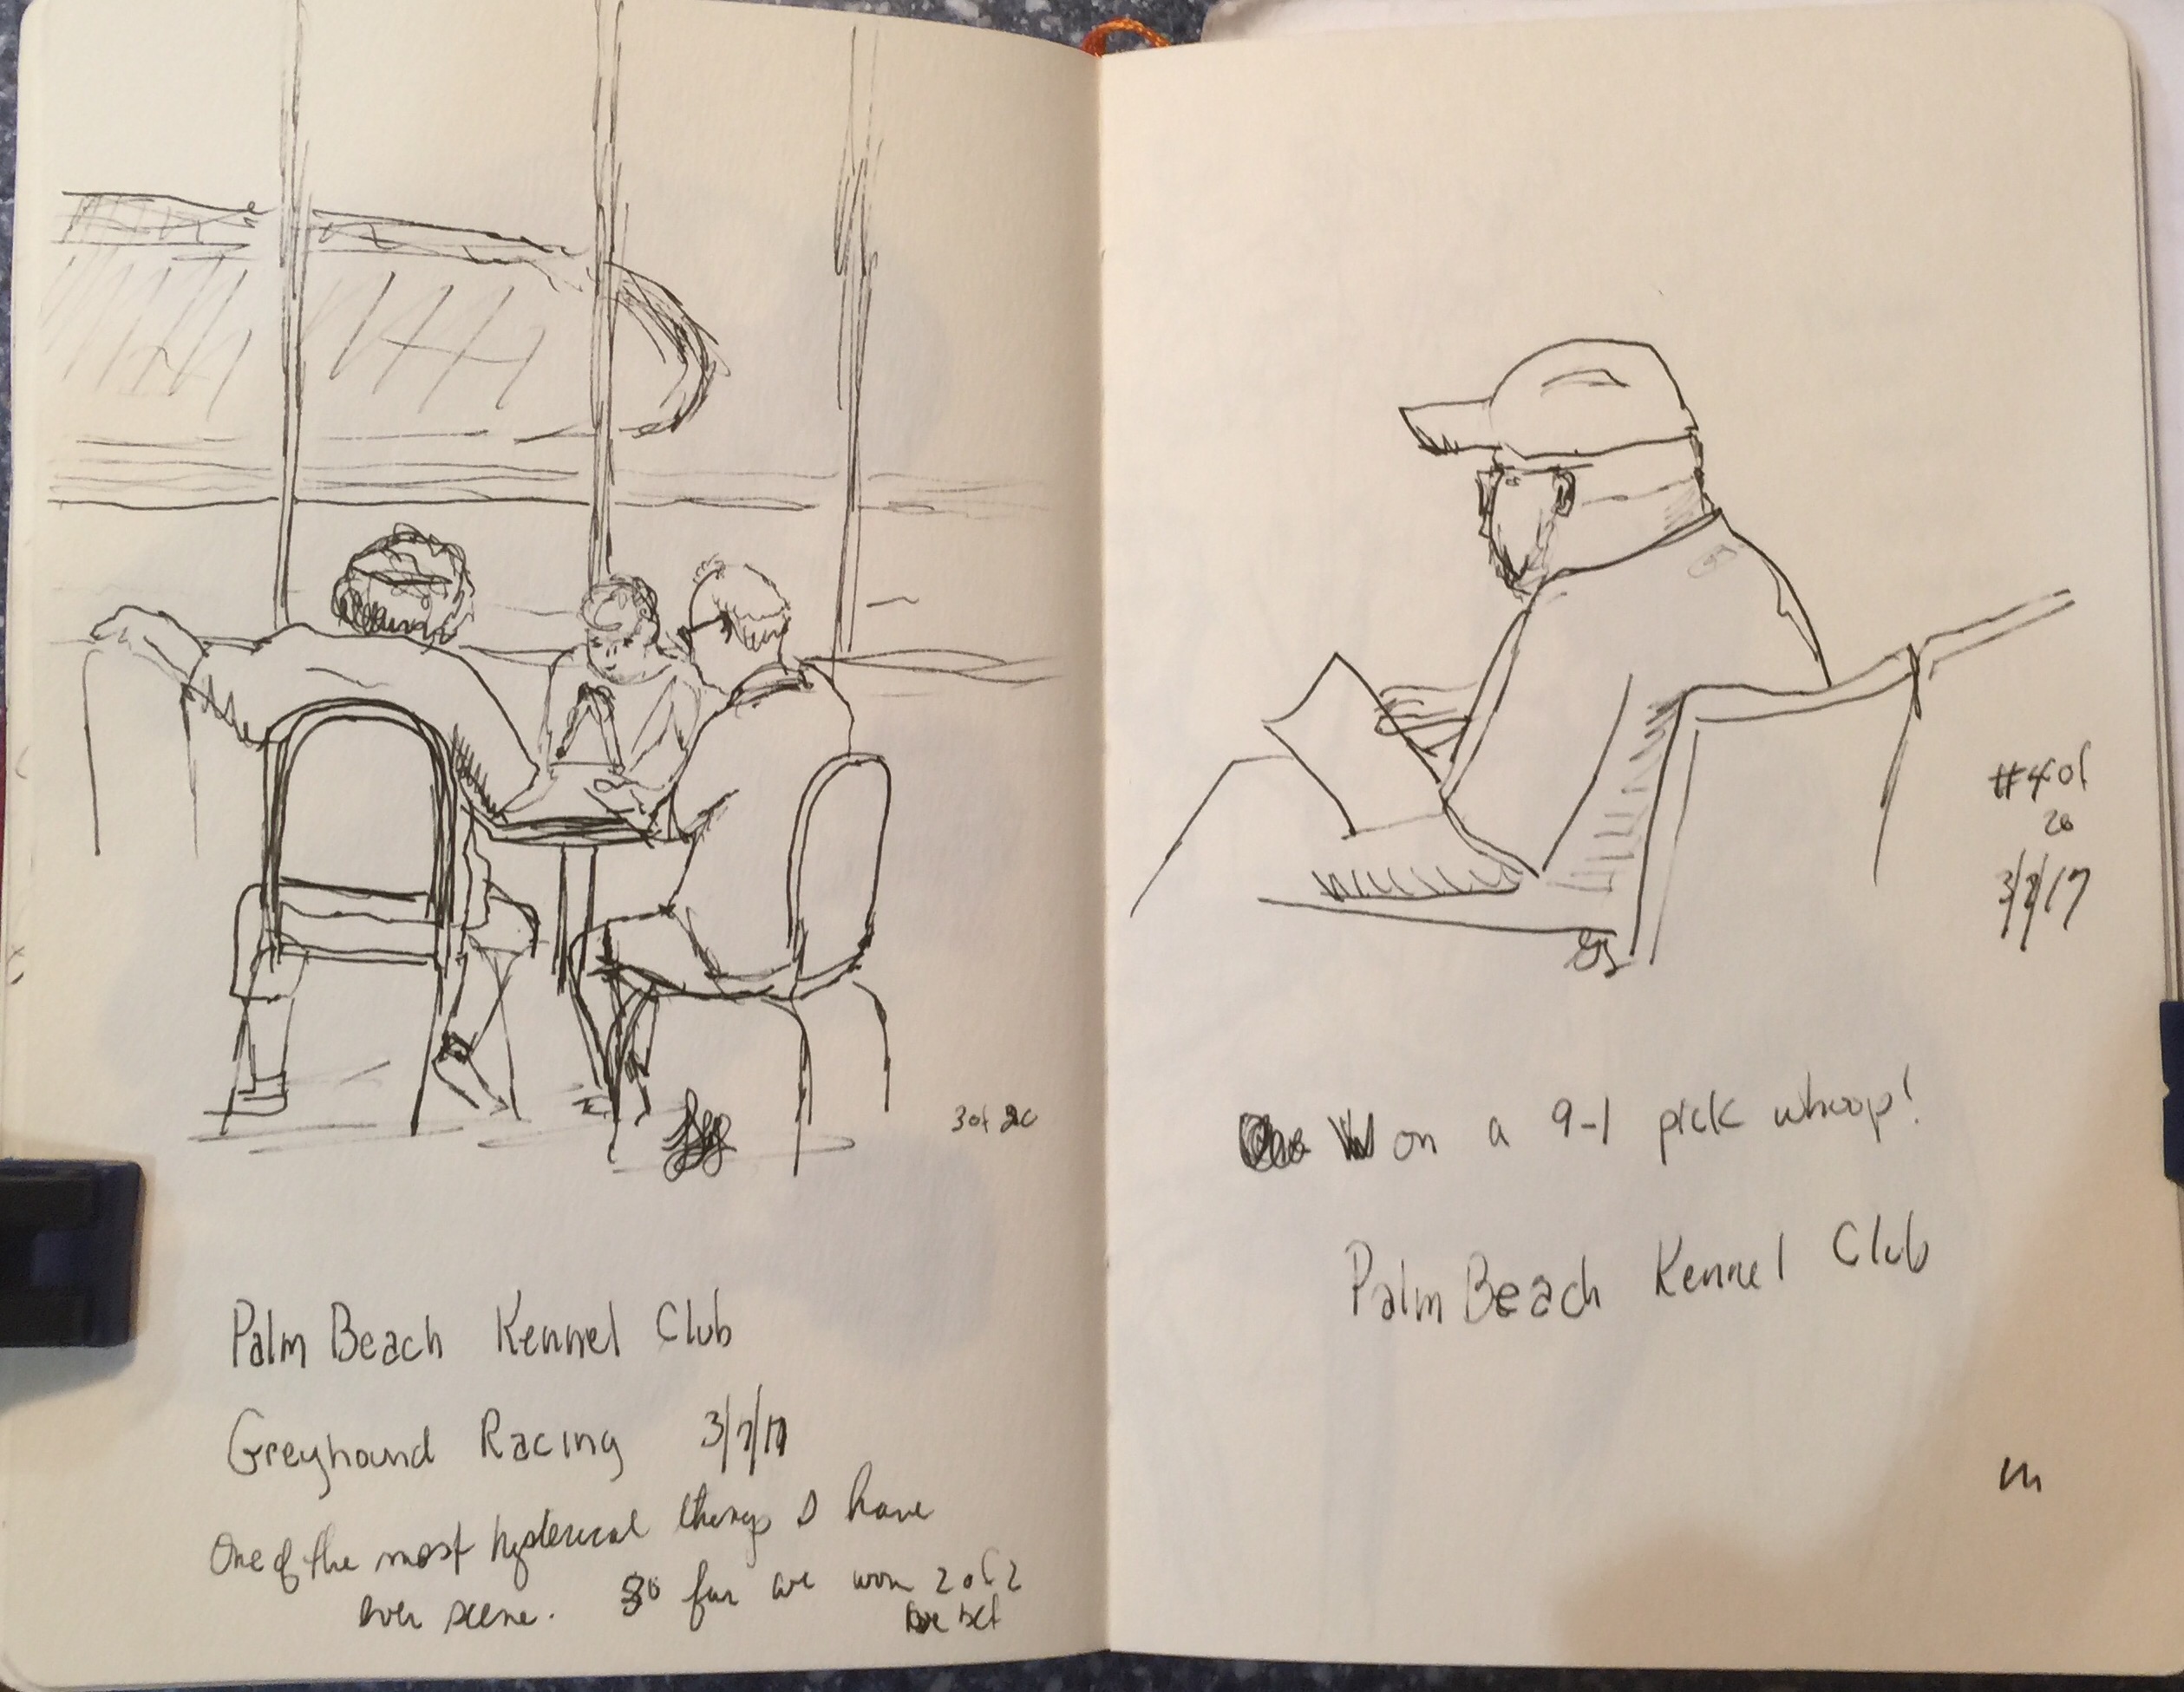 3 of 20
Palm Beach Kennel Club
Greyhound Racing 3/7/17
One of the most hysterical things I have
ever scene. So far we won 2 of 2
we bet
#4 of
20
3/7/17
Won on a 9-1 pick whoop!
Palm Beach Kennel Club